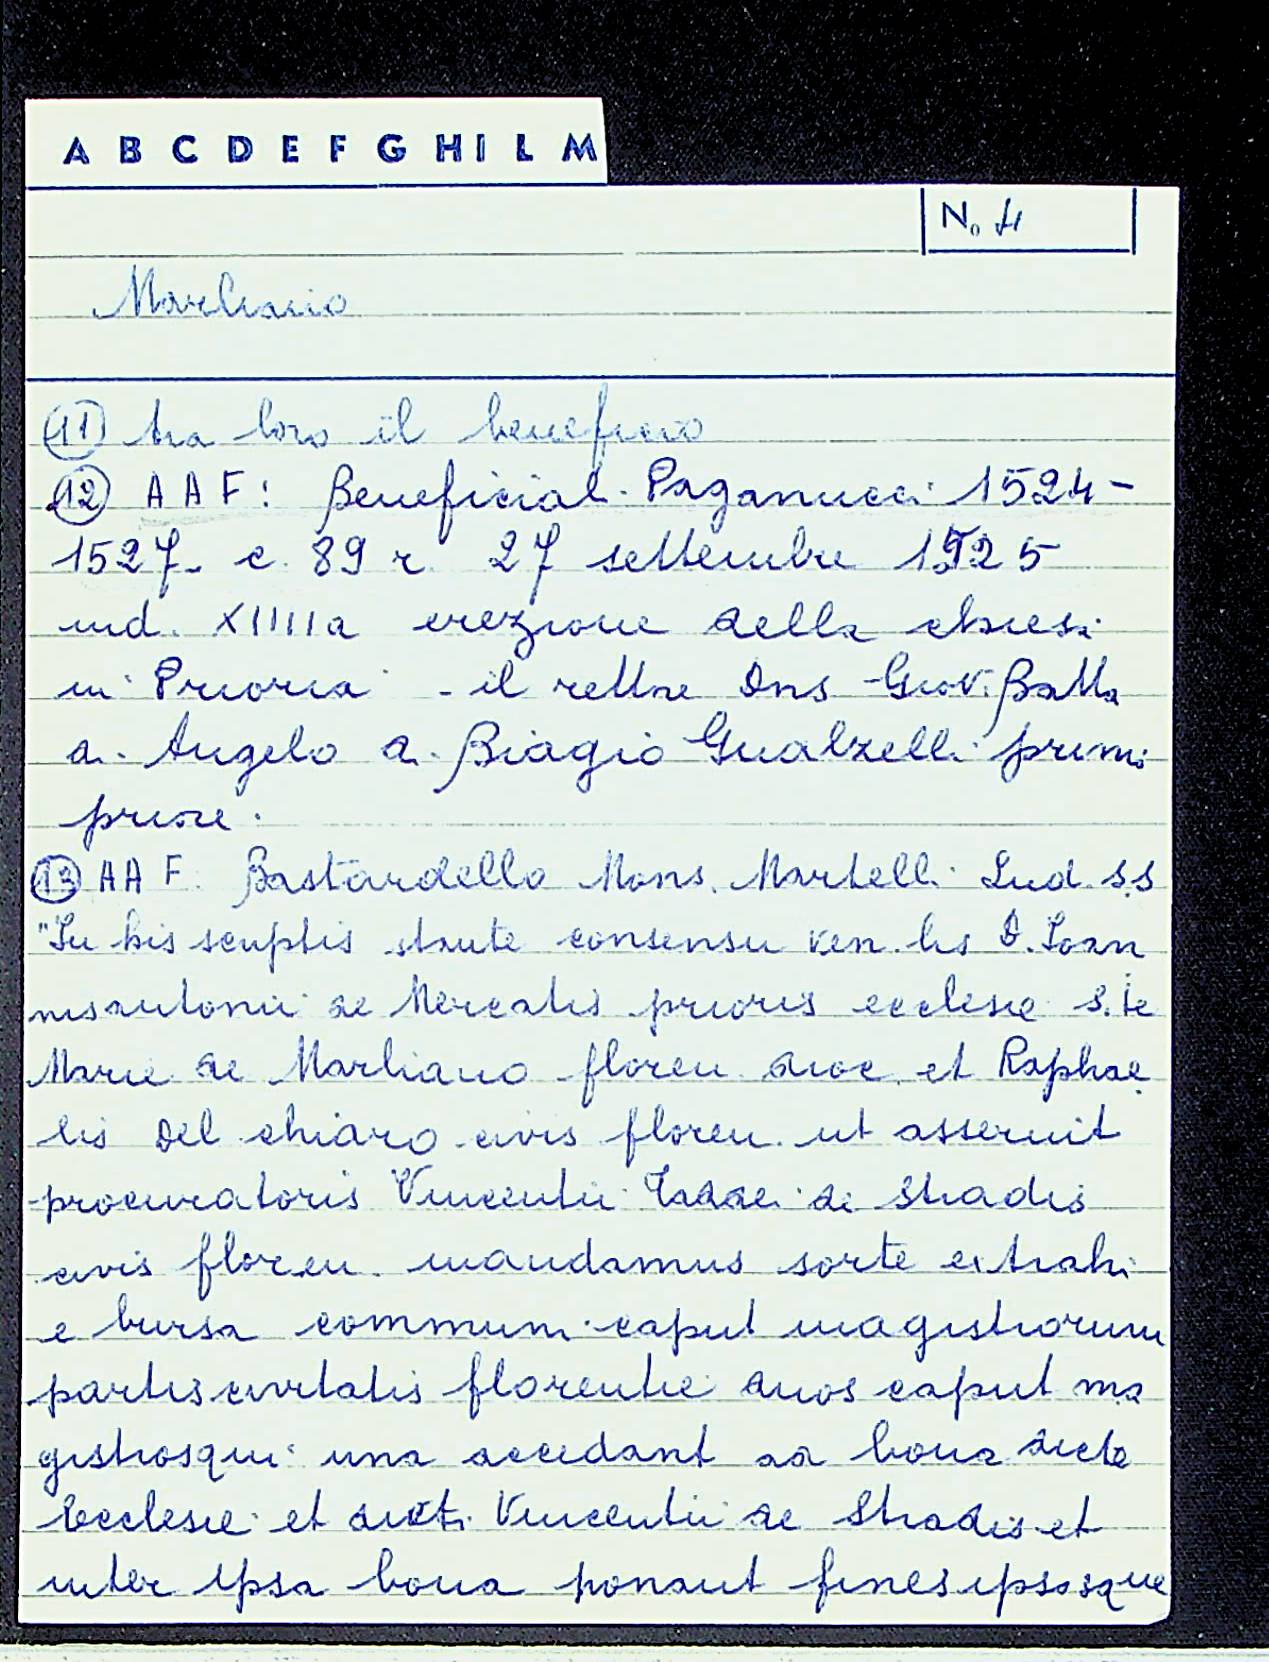 A B C D E F G H I L M
N. 4
Marliano
(11) tra loro il beneficio
(12) A A F: Beneficial. Paganucci 1524-
1527- c. 89 r. 27 settembre 1525
ind. XIIIIa erezione della chiesa
in Prioria - il rettore Dns Giov. Batta
di Angelo di Biagio Gualzelli primi
priore.
(13) AAF. Bastardello Mons. Martelli Lud. ss
"In his scriptis stante consensu ven. lis D. Ioan
nisantonii de Mercatis prioris ecclesie S. te
Marie de Marliano floren dioc. et Raphae
lis Del chiaro civis floren. ut asseruit
procuratoris Vincentii Taddei de Stradis
civis floren. mandamus sorte extrahi
e bursa communi caput magistrorum
partis civitatis florentie duos caput ma
gistrosqui una accedant ad bona dicte
Ecclesie et dicti Vincentii de Stradis et
inter ipsa bona ponant fines ipsosque